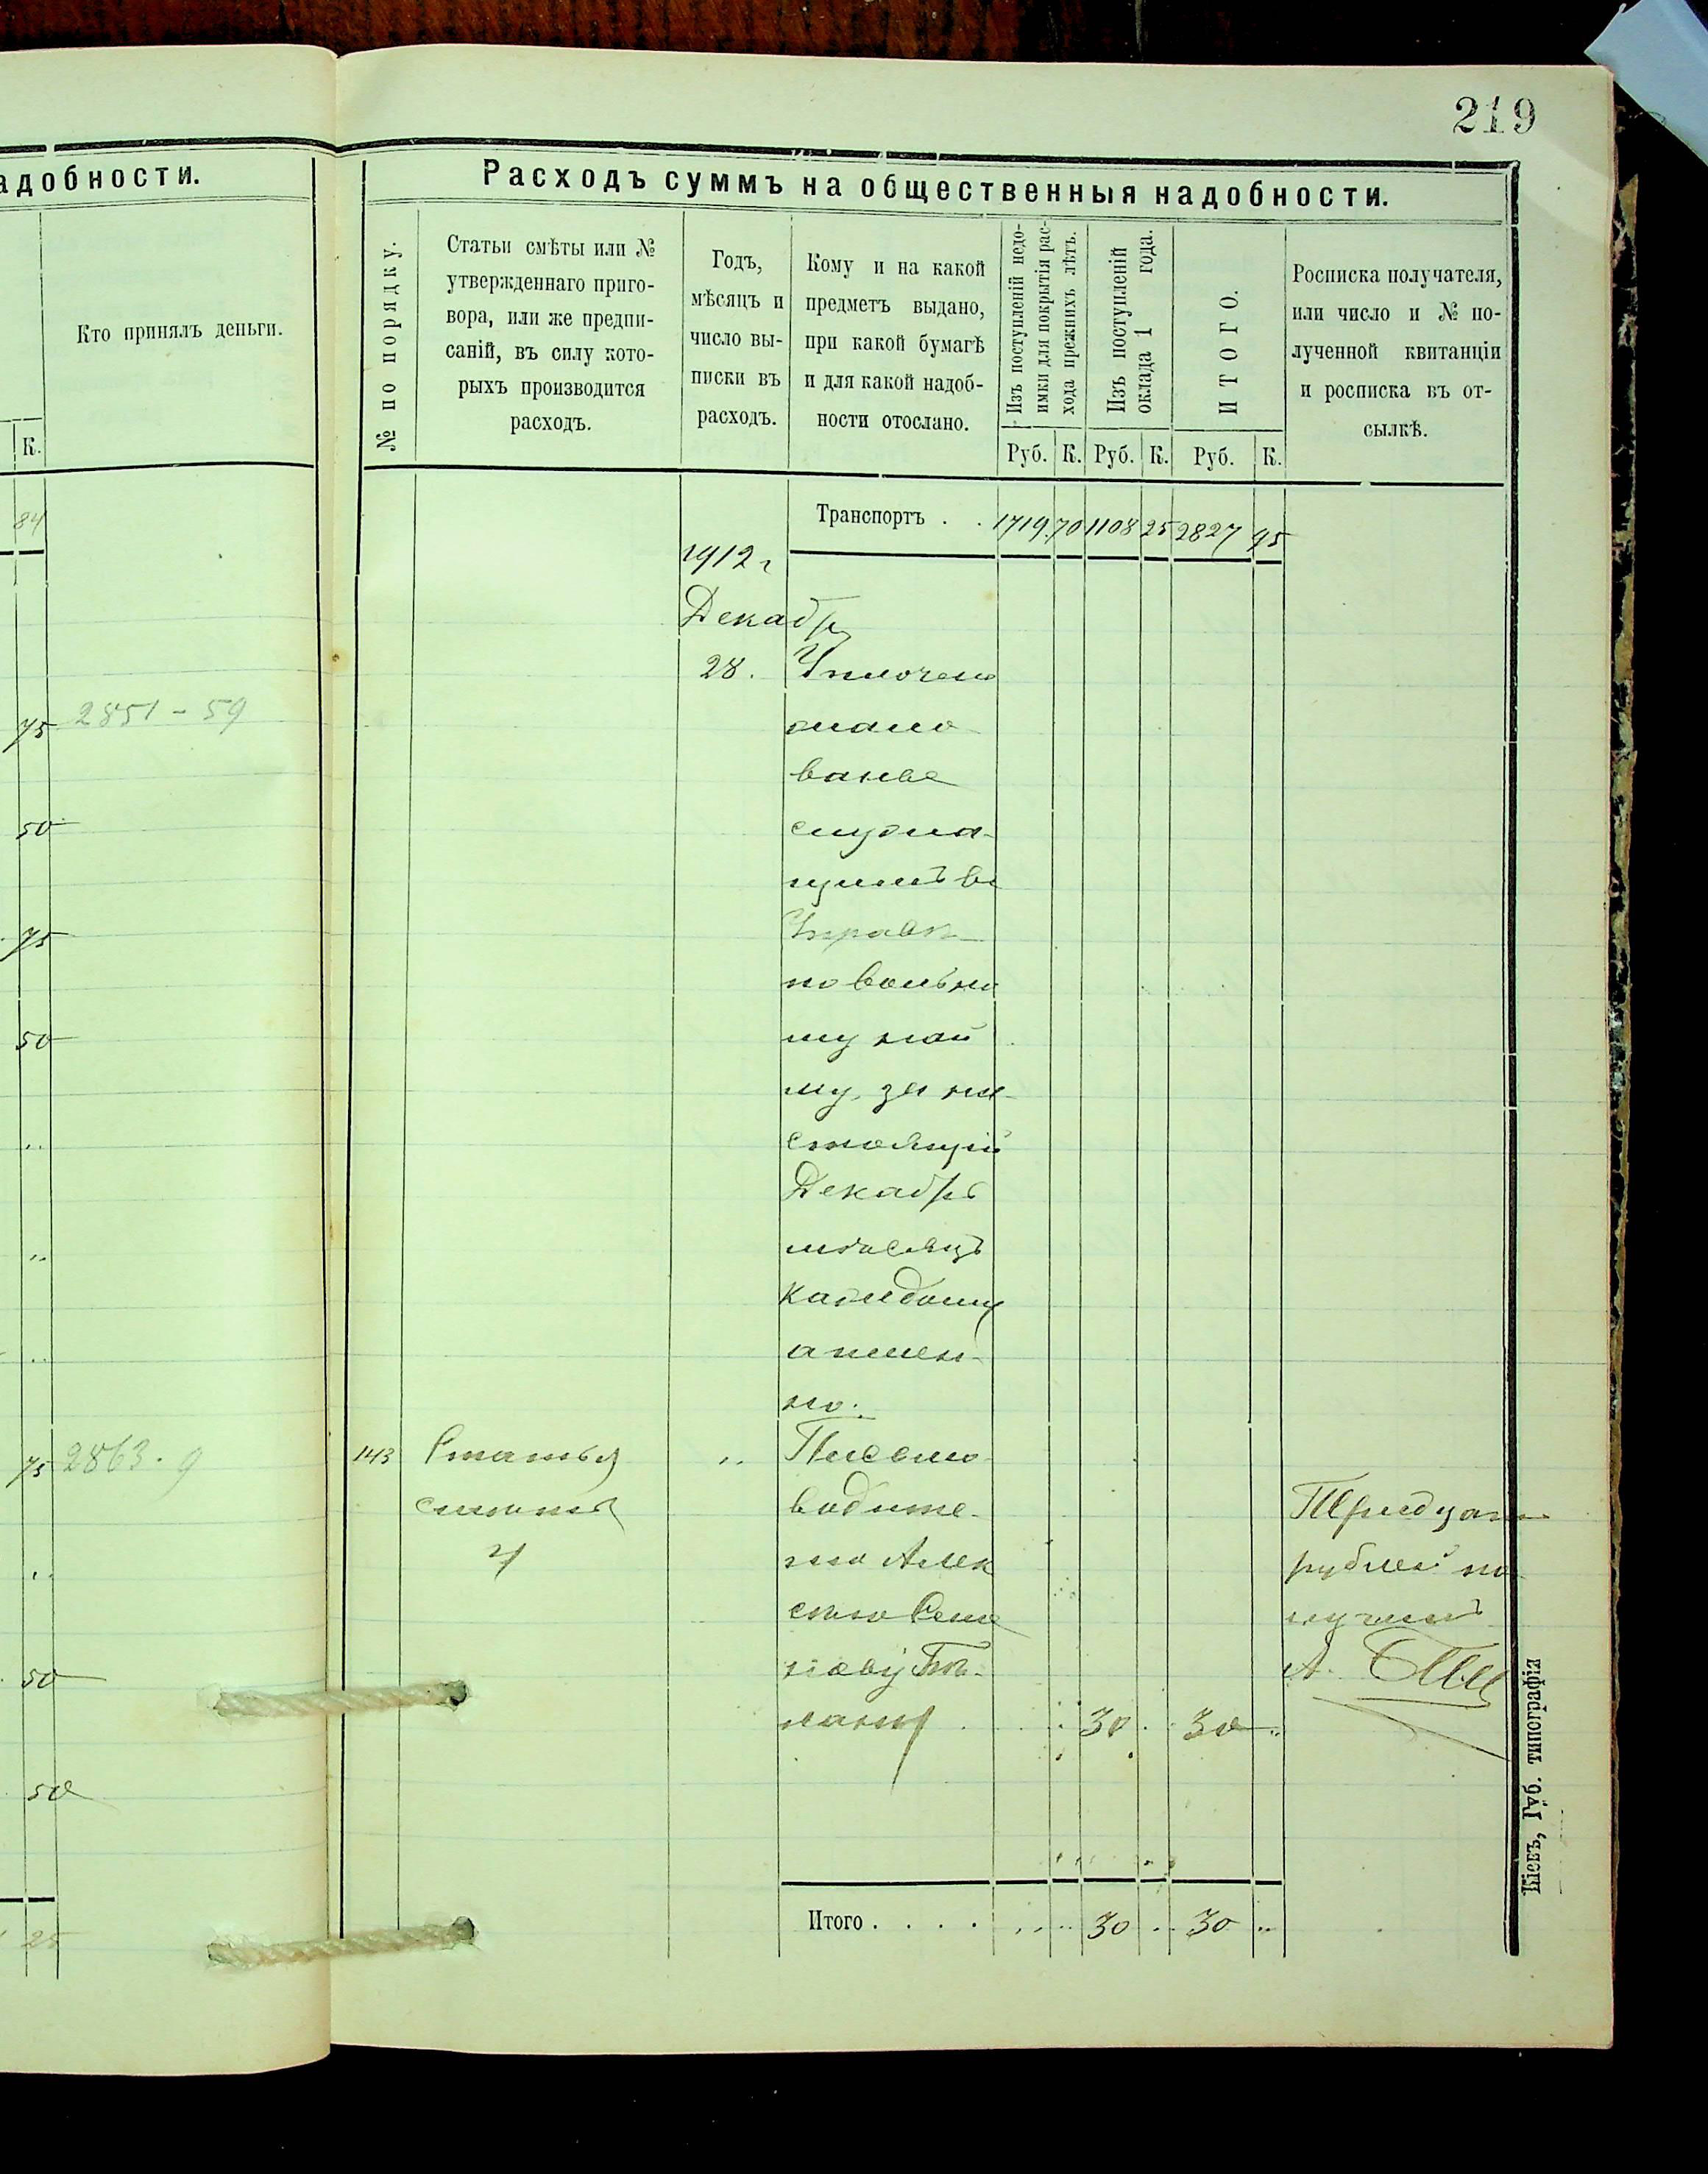 219
адобности.
Кто принялъ деньги.
К.
84
75 2851 - 59
50
75
50
75 2863. 9
50
50
25
Расходъ суммъ на общественныя надобности.
№ по порядку.
Статьи смѣты или №
утвержденнаго приго-
вора, или же предпи-
саній, въ силу кото-
рыхъ производится
расходъ.
Годъ,
мѣсяцъ и
число вы-
писки въ
расходъ.
Кому и на какой
предметъ выдано,
при какой бумагѣ
и для какой надоб-
ности отослано.
Изъ поступленій недо-
имки для покрытія рас-
хода прежнихъ лѣтъ.
Изъ поступленій
оклада 1 года.
ИТОГО.
Руб. К. Руб. К. Руб. К.
Росписка получателя,
или число и № по-
лученной квитанціи
и росписка въ от-
сылкѣ.
Транспортъ . . 1719 70 1108 25 2827 95
1912 г
Декабр
28. Уплочено
жало
ванье
служа-
щимъ в
Управл
по вольно
му най
му, за на-
стоящій
Декабрь
мѣсяцъ
каждому
а имен-
но:
143 Статья „ Письмо-
смѣты водите-
4 лю Алек
Тридцать
рублей по
лучилъ
А.
30 . 30 „
Итого . . . . „ „ 30 „ 30 „
Кіевъ, Губ. типографія